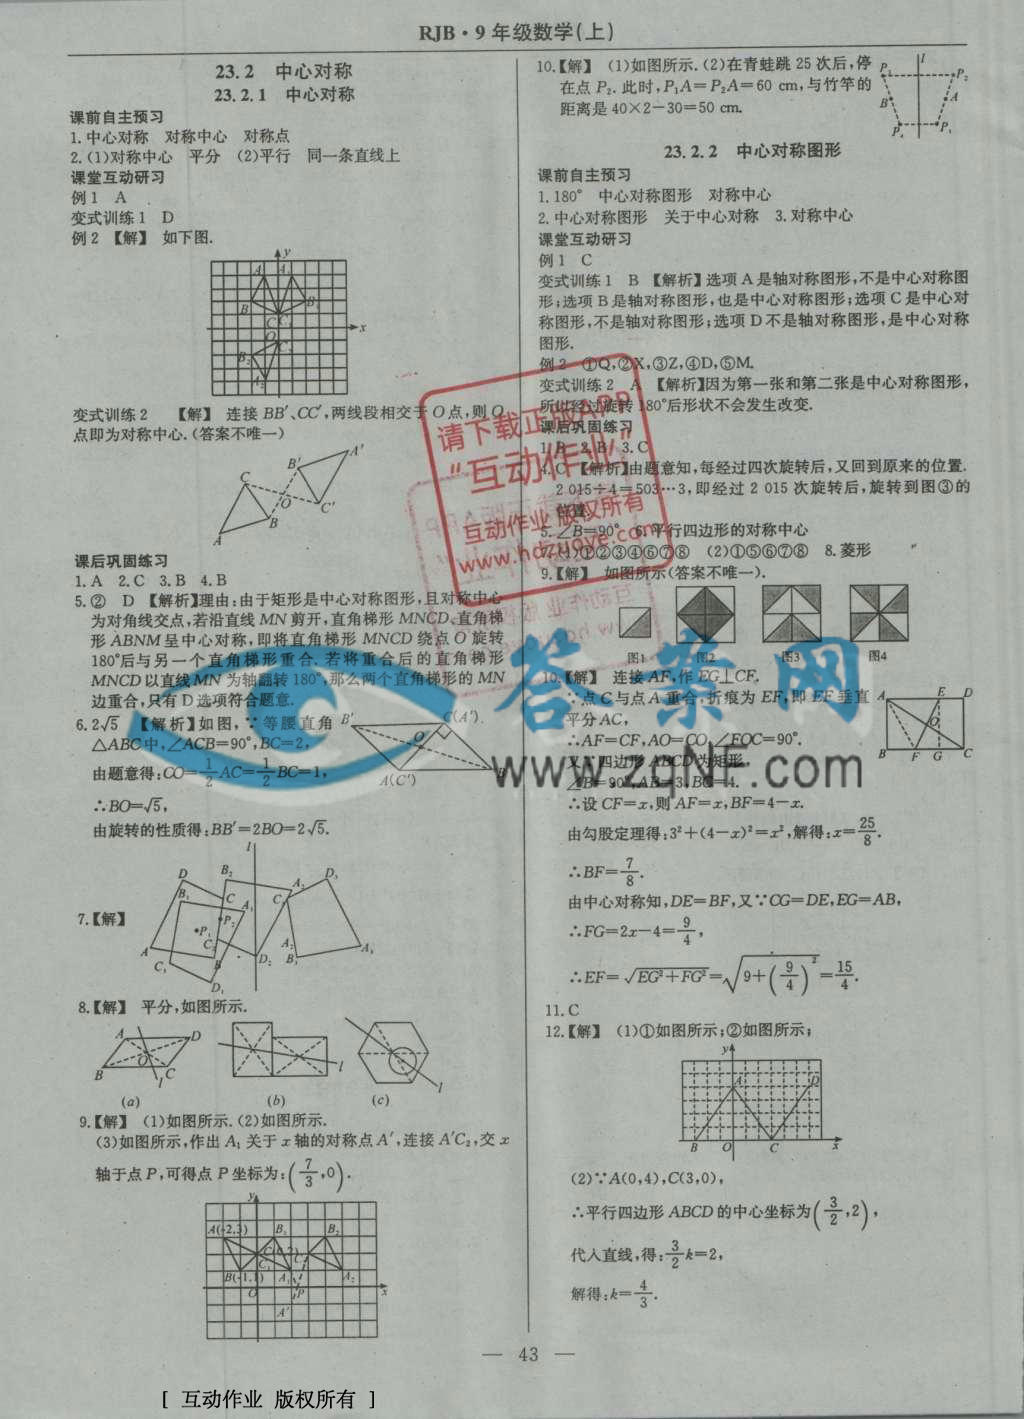 RJB·9年级数学(上)
23.2 中心对称
23.2.1 中心对称
课前自主预习
1.中心对称 对称中心 对称点
2.(1)对称中心 平分 (2)平行 同一条直线上
课堂互动研习
例1 A
变式训练1 D
例2 【解】 如下图.
变式训练2 【解】 连接BB′、CC′,两线段相交于O点,则O
点即为对称中心.(答案不唯一)
课后巩固练习
1.A 2.C 3.B 4.B
5.② D 【解析】理由:由于矩形是中心对称图形,且对称中心
为对角线交点,若沿直线MN剪开,直角梯形MNCD、直角梯
形ABNM呈中心对称,即将直角梯形MNCD绕点O旋转
180°后与另一个直角梯形重合.若将重合后的直角梯形
MNCD以直线MN为轴翻转180°,那么两个直角梯形的MN
边重合,只有D选项符合题意.
6.2√5 【解析】如图,∵等腰直角
△ABC中,∠ACB=90°,BC=2,
由题意得:CO=1/2AC=1/2BC=1,
∴BO=√5,
由旋转的性质得:BB′=2BO=2√5.
7.【解】
8.【解】 平分,如图所示.
(a) (b) (c)
9.【解】 (1)如图所示.(2)如图所示.
(3)如图所示,作出A₁关于x轴的对称点A′,连接A′C₂,交x
轴于点P,可得点P坐标为:(7/3,0).
10.【解】 (1)如图所示.(2)在青蛙跳25次后,停
在点P₂.此时,P₁A=P₂A=60 cm,与竹竿的
距离是40×2-30=50 cm.
23.2.2 中心对称图形
课前自主预习
1.180° 中心对称图形 对称中心
2.中心对称图形 关于中心对称 3.对称中心
课堂互动研习
例1 C
变式训练1 B 【解析】选项A是轴对称图形,不是中心对称图
形;选项B是轴对称图形,也是中心对称图形;选项C是中心对
称图形,不是轴对称图形;选项D不是轴对称图形,是中心对称
图形.
例2 ①Q,②X,③Z,④D,⑤M.
变式训练2 A 【解析】因为第一张和第二张是中心对称图形,
所以经过旋转180°后形状不会发生改变.
课后巩固练习
1.B 2.B 3.C
4.C 【解析】由题意知,每经过四次旋转后,又回到原来的位置.
2 015÷4=503…3,即经过2 015次旋转后,旋转到图③的
位置.
5.∠B=90° 6.平行四边形的对称中心
7.(1)①②③④⑥⑦⑧ (2)①⑤⑥⑦⑧ 8.菱形
9.【解】 如图所示(答案不唯一).
图1 图2 图3 图4
10.【解】 连接AF,作EG⊥CF.
∵点C与点A重合,折痕为EF,即EF垂直
平分AC,
∴AF=CF,AO=CO,∠FOC=90°.
又∵四边形ABCD为矩形,
∠B=90°,AB=3,BC=4.
∴设CF=x,则AF=x,BF=4-x.
由勾股定理得:3²+(4-x)²=x²,解得:x=25/8.
∴BF=7/8.
由中心对称知,DE=BF,又∵CG=DE,EG=AB,
∴FG=2x-4=9/4,
∴EF=√(EG²+FG²)=√(9+(9/4)²)=15/4.
11.C
12.【解】 (1)①如图所示;②如图所示;
(2)∵A(0,4),C(3,0),
∴平行四边形ABCD的中心坐标为(3/2,2),
代入直线,得:3/2k=2,
解得:k=4/3.
— 43 —
请下载正版APP
"互动作业"
互动作业 版权所有
www.hdzuoye.com
答案网
www.zqNF.com
[ 互动作业 版权所有 ]